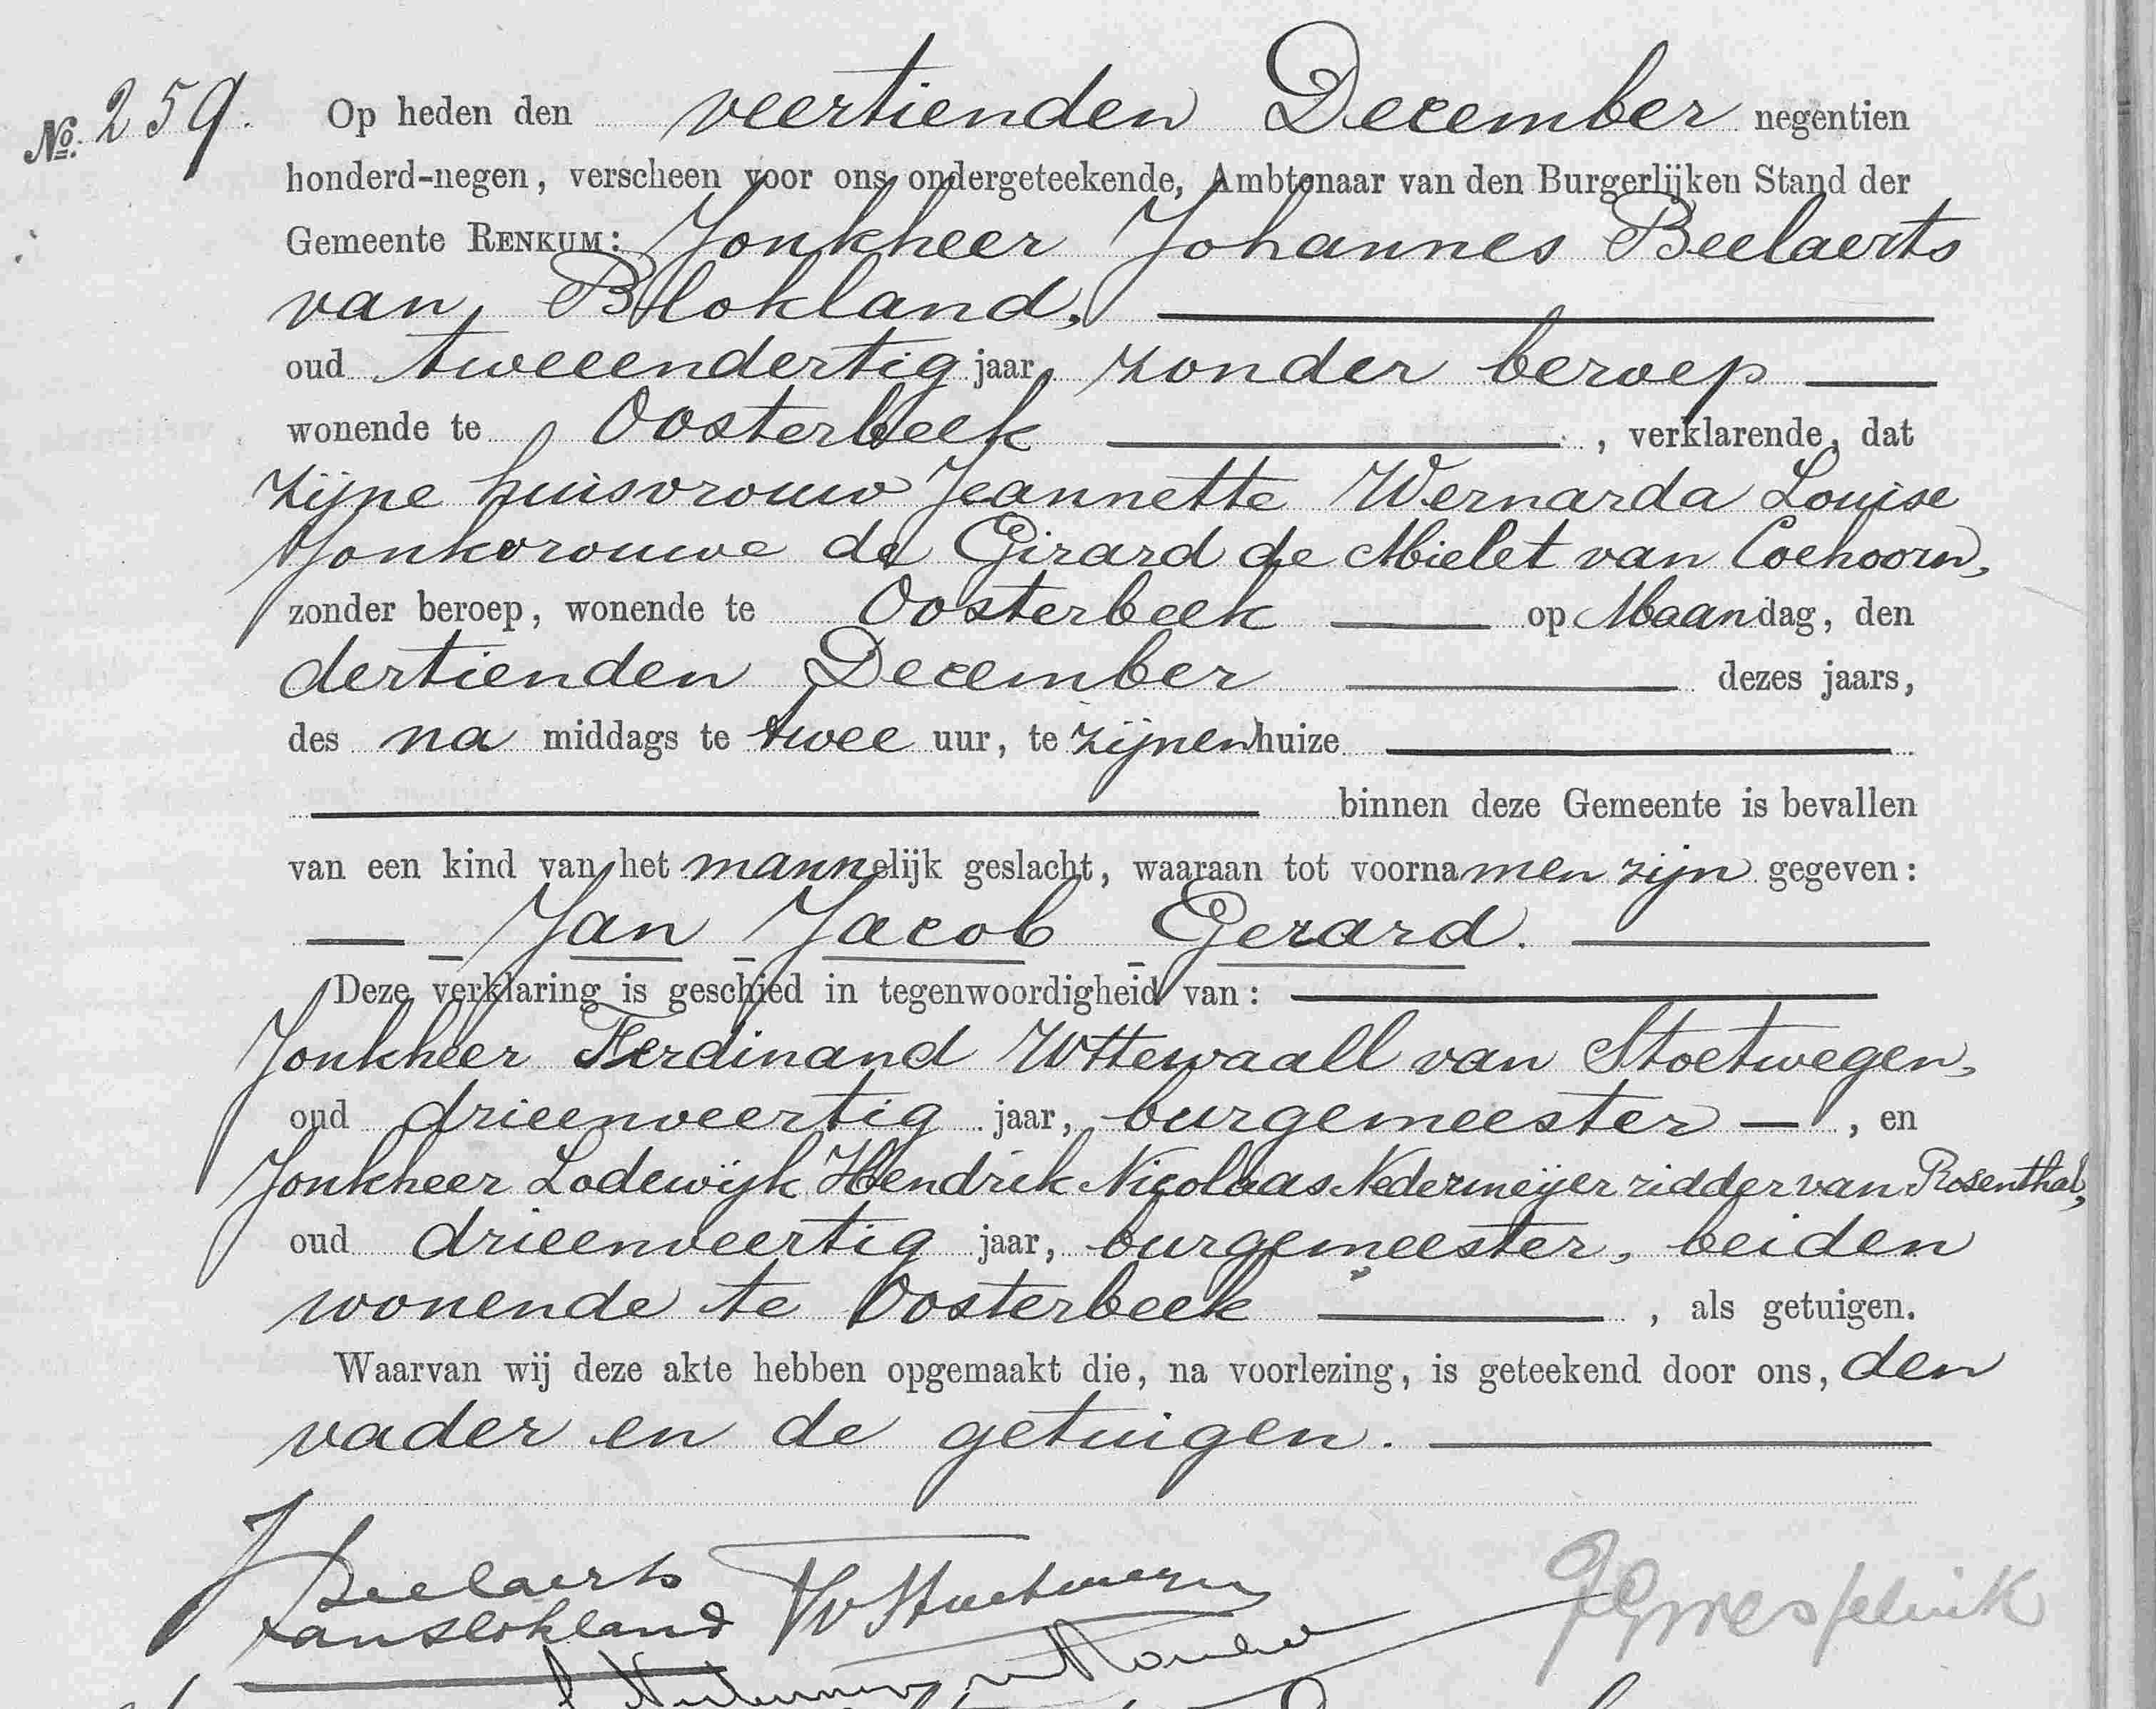 No. 259.
Op heden den veertienden December negentien
honderd-negen, verscheen voor ons ondergeteekende, Ambtenaar van den Burgerlijken Stand der
Gemeente RENKUM: Jonkheer Johannes Beelaerts
van Blokland,
oud tweeendertig jaar, zonder beroep
wonende te Oosterbeek , verklarende, dat
zijne huisvrouw Jeannette Wernarda Louise
Jonkvrouwe de Girard de Mielet van Coehoorn,
zonder beroep, wonende te Oosterbeek op Maandag, den
dertienden December dezes jaars,
des na middags te twee uur, te zijnen huize
binnen deze Gemeente is bevallen
van een kind van het mannelijk geslacht, waaraan tot voornamen zijn gegeven:
Jan Jacob Gerard.
Deze verklaring is geschied in tegenwoordigheid van:
Jonkheer Ferdinand Wttewaall van Stoetwegen,
oud drieenveertig jaar, burgemeester , en
Jonkheer Lodewijk Hendrik Nicolaas Nedermeijer ridder van Rosenthal,
oud drieenveertig jaar, burgemeester, beiden
wonende te Oosterbeek , als getuigen.
Waarvan wij deze akte hebben opgemaakt die, na voorlezing, is geteekend door ons, den
vader en de getuigen.
Beelaerts
van Blokland